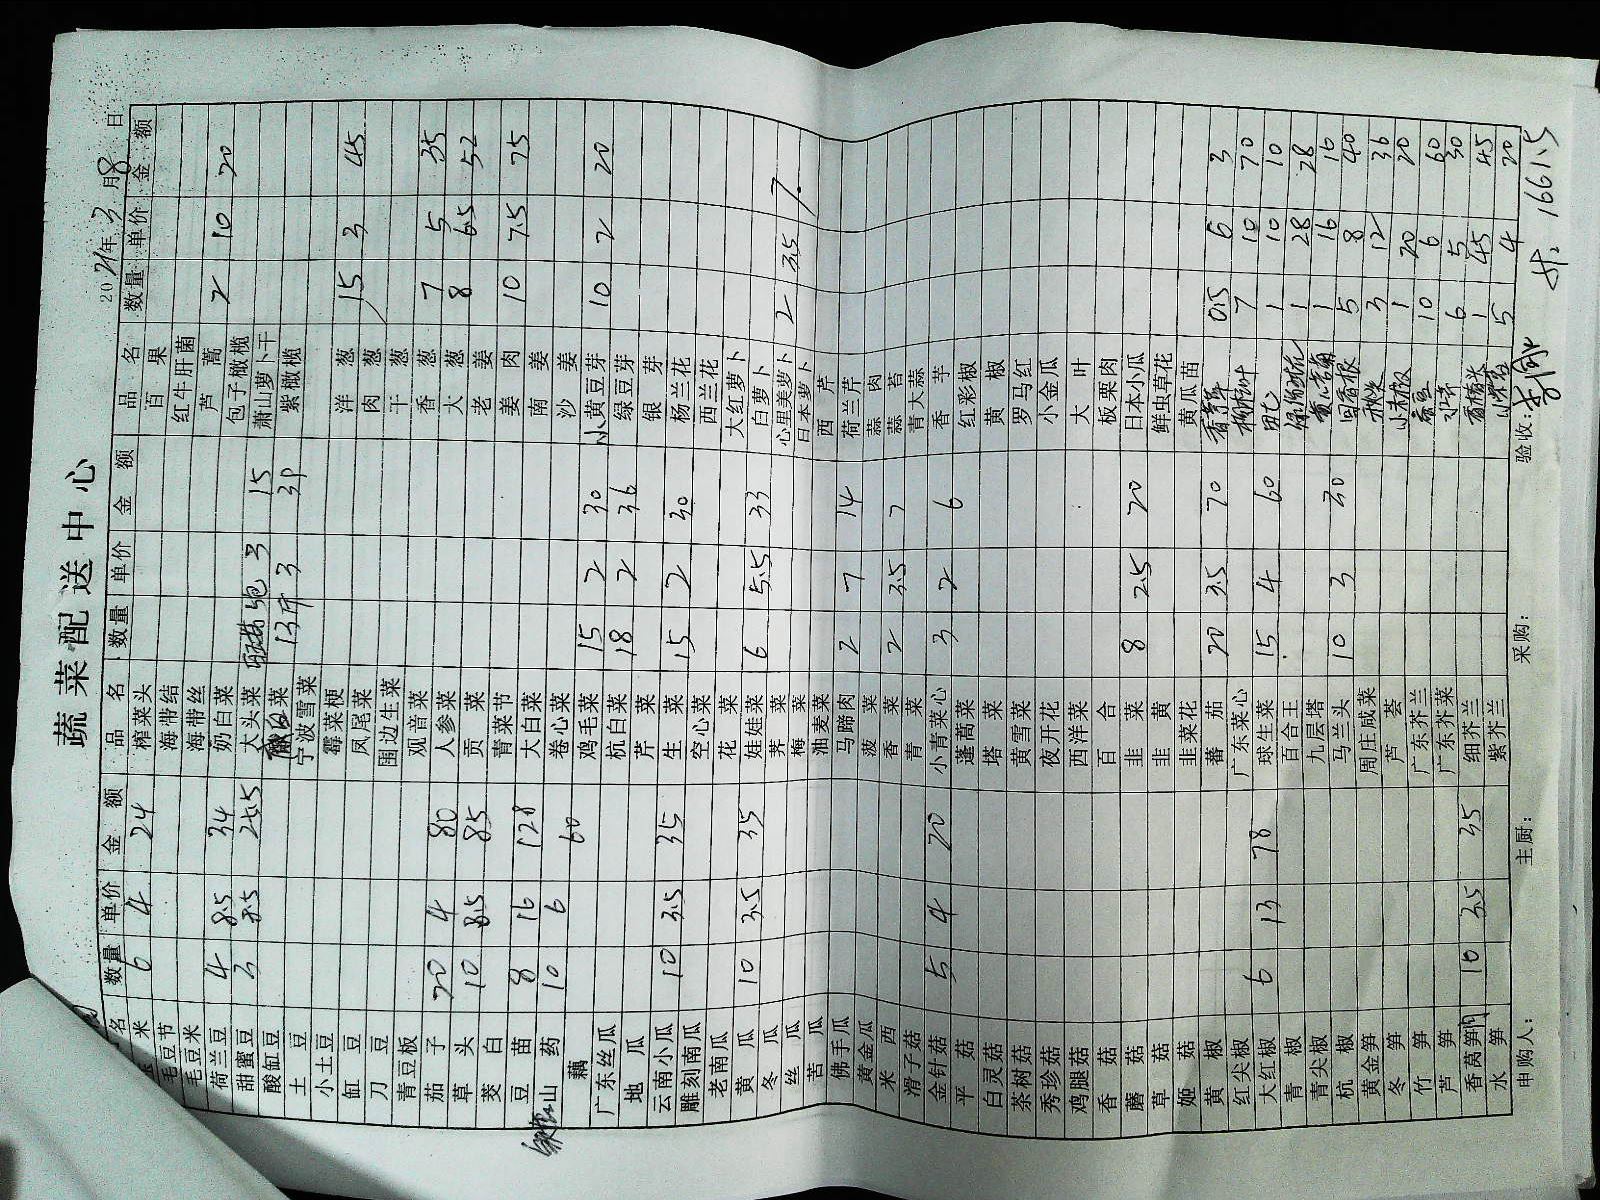 蔬菜配送中心
2021年3月8日
名 数量 单价 金额
米 6 4 24
毛豆节
毛豆米
荷兰豆 4 8.5 34
甜蜜豆 3 8.5 25.5
酸缸豆
土豆
小土豆
缸豆
刀豆
青豆板
茄子 20 4 80
草头 10 8.5 85
茭白
豆苗 8 16 128
山药 10 6 60
藕
广东丝瓜
地瓜
云南小瓜 10 3.5 35
雕刻南瓜
老南瓜
黄瓜 10 3.5 35
冬瓜
丝瓜
苦瓜
佛手瓜
黄金瓜
米西
滑子菇
金针菇 5 4 20
平菇
白灵菇
茶树菇
秀珍菇
鸡腿菇
香菇
蘑菇
草菇
姬菇
黄椒
红尖椒
大红椒 6 13 78
青椒
青尖椒
杭椒
黄金笋
冬笋
竹笋
芦笋
香莴笋 10 3.5 35
水笋
品名 数量 单价 金额
榨菜头
海带结
海带丝
奶白菜
大头菜 3 15
菜 13斤 3 39
宁波雪菜
霉菜梗
凤尾菜
围边生菜
观音菜
人参菜
贡菜
青菜节
大白菜
卷心菜
鸡毛菜 15 2 30
杭白菜 18 2 36
芹菜
生菜 15 2 30
空心菜
花菜
娃娃菜 6 5.5 33
荠菜
梅菜
油麦菜
马蹄肉 2 7 14
菠菜
香菜 2 3.5 7
青菜
小青菜心 3 2 6
蓬蒿菜
塔菜
黄雪菜
夜开花
西洋菜
百合
韭菜 8 2.5 20
韭黄
韭菜花
蕃茄 20 3.5 70
广东菜心
球生菜 15 4 60
百合王
九层塔
马兰头 10 3 30
周庄咸菜
芦荟
广东芥兰
广东芥菜
细芥兰
紫芥兰
品名 数量 单价 金额
百果
红牛肝菌
芦蒿 2 10 20
包子橄榄
萧山萝卜干
紫橄榄
洋葱 15 3 45
肉葱
干葱
香葱 7 5 35
大葱 8 6.5 52
老姜
姜肉 10 7.5 75
南姜
沙姜
小黄豆芽 10 2 20
绿豆芽
银芽
杨兰花
西兰花
大红萝卜
白萝卜
心里美萝卜 2 3.5 7.
日本萝卜
西芹
荷兰芹
蒜肉
蒜苔
青大蒜
香芋
红彩椒
黄椒
罗马红
小金瓜
大叶
板栗肉
日本小瓜
鲜虫草花
黄瓜苗
0.5 6 3
7 10 70
1 10 10
1 28 28
1 16 16
茴香根 5 8 40
3 12 36
小米椒 1 20 20
10 6 60
6 5 30
1 45 45
5 4 20
申购人： 主厨： 采购： 验收： 1661.5